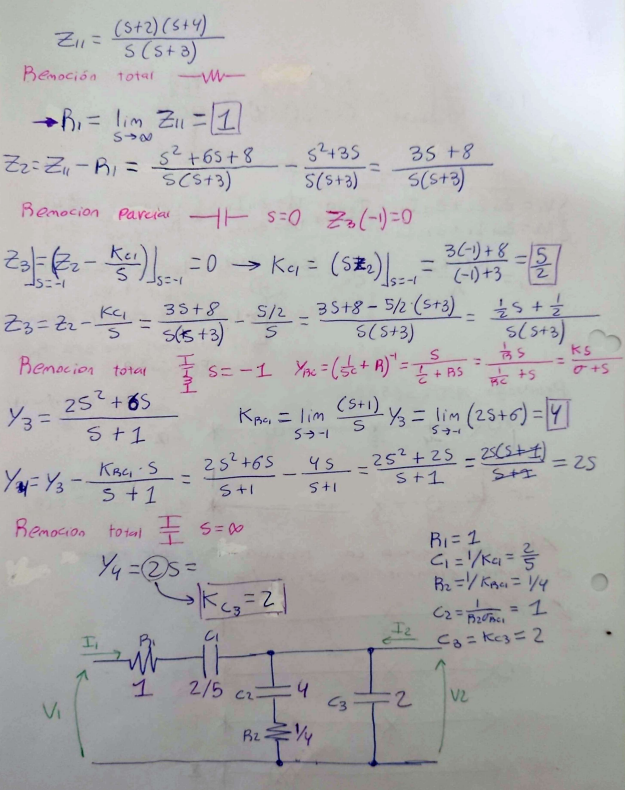 Z₁₁ = (s+2)(s+4) / s(s+3)
Remoción total
→ R₁ = lim s→∞ Z₁₁ = 1
Z₂ = Z₁₁ - R₁ = s²+6s+8 / s(s+3) - s²+3s / s(s+3) = 3s+8 / s(s+3)
Remocion Parcial s=0 Z₃(-1)=0
Z₃|s=-1 = (Z₂ - Kc₁/s)|s=-1 = 0 → Kc₁ = (sZ₂)|s=-1 = 3(-1)+8 / (-1)+3 = 5/2
Z₃ = Z₂ - Kc₁/s = 3s+8 / s(s+3) - 5/2 / s = 3s+8-5/2·(s+3) / s(s+3) = ½s + ½ / s(s+3)
Remocion total s=-1 Y_RC = (1/sC + R)⁻¹ = s / (1/C + Rs) = (1/R s) / (1/RC + s) = Ks / σ+s
Y₃ = 2s²+6s / s+1 K_RC₁ = lim s→-1 (s+1)/s Y₃ = lim s→-1 (2s+6) = 4
Y₄ = Y₃ - K_RC₁·s / s+1 = 2s²+6s / s+1 - 4s / s+1 = 2s²+2s / s+1 = 2s(s+1) / s+1 = 2s
Remocion total s=∞
Y₄ = 2s =
Kc₃ = 2
R₁ = 1
C₁ = 1/Kc₁ = 2/5
R₂ = 1/K_RC₁ = 1/4
C₂ = 1 / R₂σ_RC₁ = 1
C₃ = Kc₃ = 2
I₁ R₁ C₁ I₂
1 2/5 C₂ 4 C₃ 2
V₁ R₂ 1/4 V2